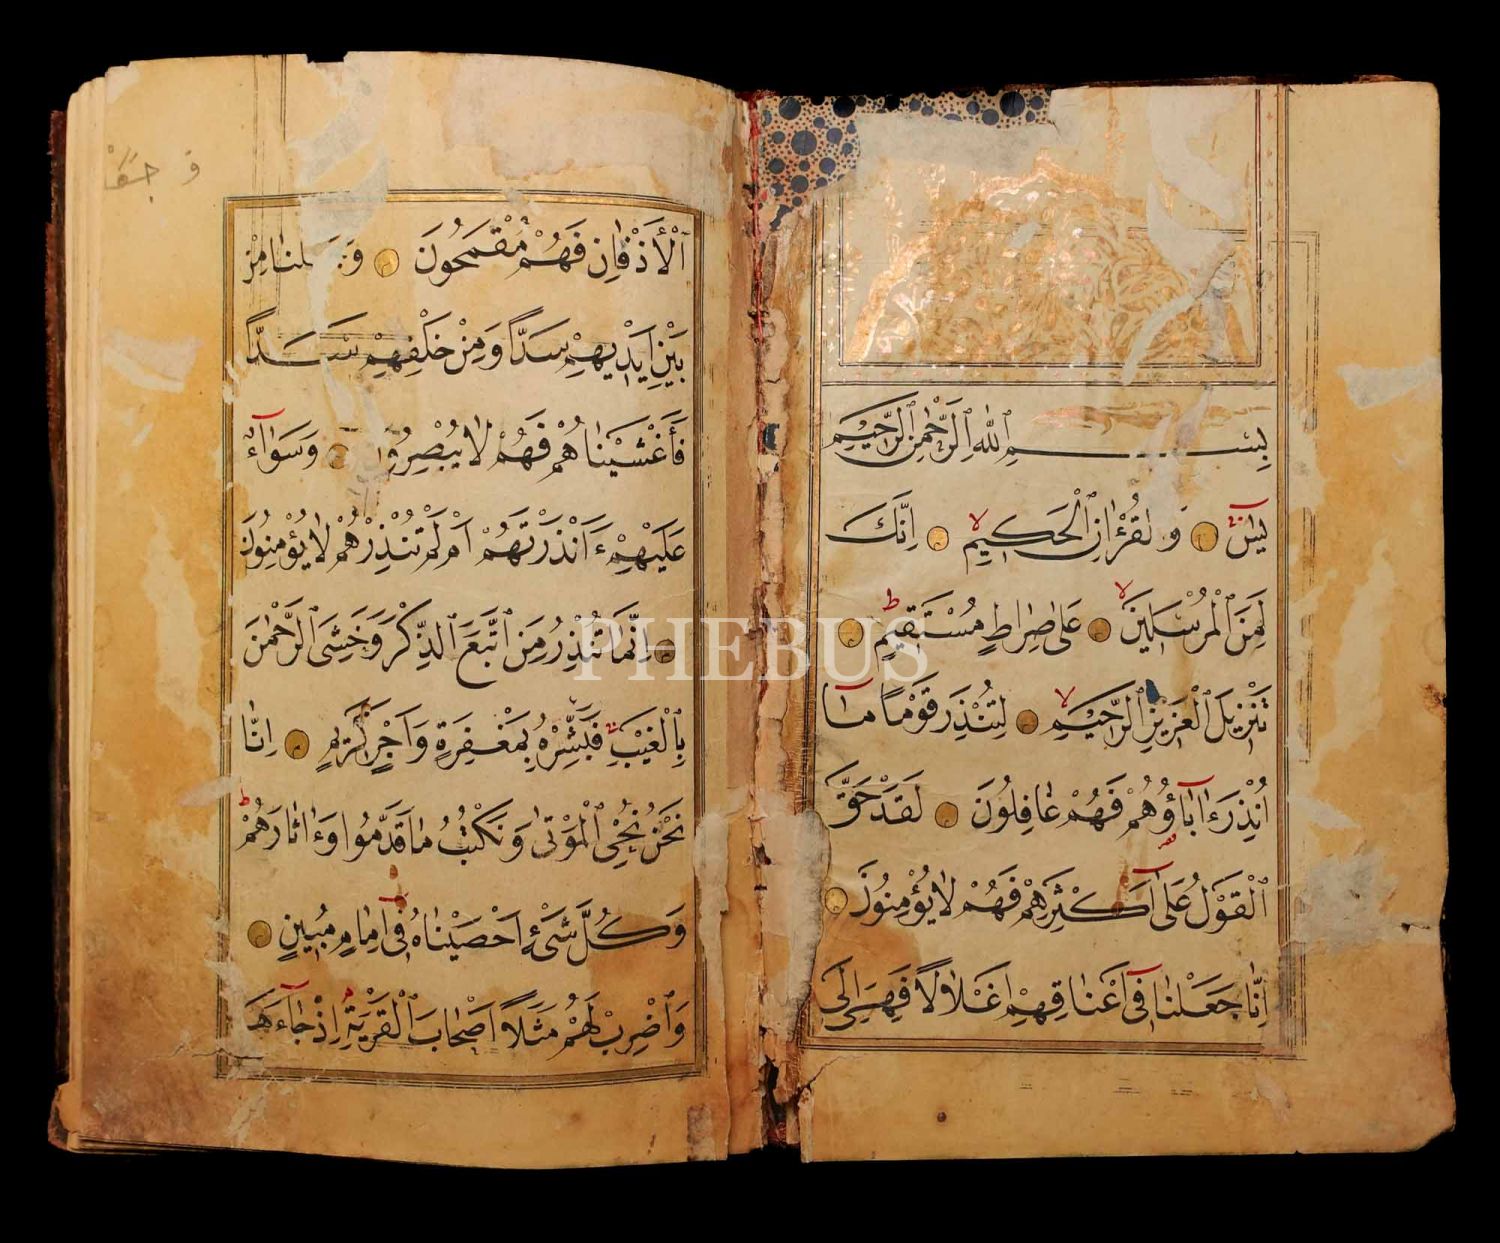 بِسْمِ ٱللّٰهِ ٱلرَّحْمٰنِ ٱلرَّحٖيمِ
يٰسٓ وَٱلْقُرْءَانِ ٱلْحَكٖيمِ اِنَّكَ
لَمِنَ ٱلْمُرْسَلٖينَ عَلٰى صِرَاطٍ مُسْتَقٖيمٍ
تَنْزٖيلَ ٱلْعَزٖيزِ ٱلرَّحٖيمِ لِتُنْذِرَ قَوْمًا مَٓا
اُنْذِرَ ءَابَٓاؤُهُمْ فَهُمْ غَافِلُونَ لَقَدْ حَقَّ
ٱلْقَوْلُ عَلٰٓى اَكْثَرِهِمْ فَهُمْ لَا يُؤْمِنُونَ
اِنَّا جَعَلْنَا فٖٓى اَعْنَاقِهِمْ اَغْلَالًا فَهِىَ اِلَى
ٱلْأَذْقَانِ فَهُمْ مُقْمَحُونَ وَ لْنَا مِنْ
بَيْنِ اَيْدٖيهِمْ سَدًّا وَمِنْ خَلْفِهِمْ سَدًّا
فَأَغْشَيْنَاهُمْ فَهُمْ لَا يُبْصِرُونَ وَسَوَٓاءٌ
عَلَيْهِمْ ءَاَنْذَرْتَهُمْ اَمْ لَمْ تُنْذِرْهُمْ لَا يُؤْمِنُونَ
اِنَّمَا تُنْذِرُ مَنِ ٱتَّبَعَ ٱلذِّكْرَ وَخَشِىَ ٱلرَّحْمٰنَ
بِٱلْغَيْبِ فَبَشِّرْهُ بِمَغْفِرَةٍ وَاَجْرٍ كَرٖيمٍ اِنَّا
نَحْنُ نُحْىِ ٱلْمَوْتٰى وَنَكْتُبُ مَا قَدَّمُوا وَءَاثَارَهُمْ
وَكُلَّ شَىْءٍ اَحْصَيْنَاهُ فٖٓى اِمَامٍ مُبٖينٍ
وَٱضْرِبْ لَهُمْ مَثَلًا اَصْحَابَ ٱلْقَرْيَةِ اِذْ جَٓاءَهَا
PHEBUS